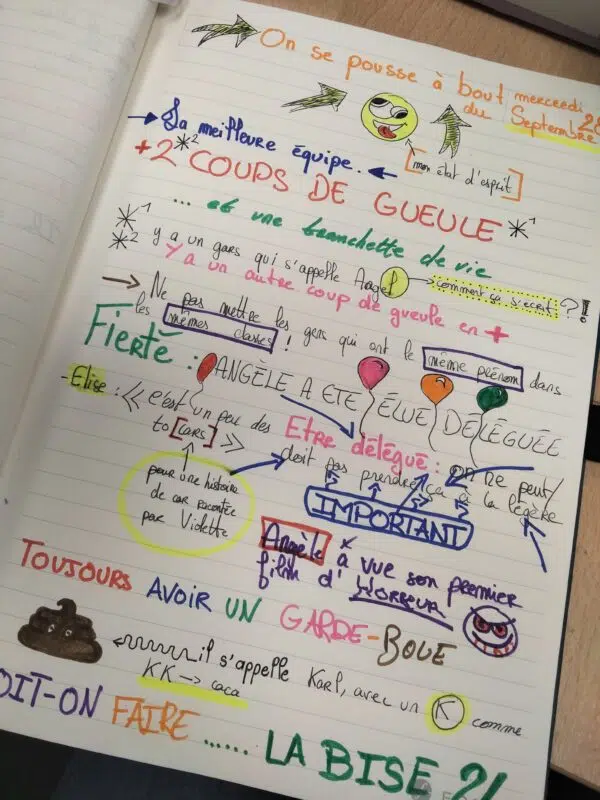 On se pousse à bout
mercredi
du
Septembre
[mon état d'esprit]
La meilleure équipe.
+ 2 *2 COUPS DE GUEULE *1
... et une tranchette de vie
*1
*2 y a un gars qui s'appelle Angel
comment ça s'écrit ?!
Y a un autre coup de gueule en +
Ne pas mettre les gens qui ont le même prénom dans
les mêmes classes !
Fierté : ANGÈLE A ETE ÉLUE DÉLÉGUÉE
- Elise : << c'est un peu des
to [cars] >>
pour une histoire
de car racontée
par Violette
Etre délégué : on ne peut/
doit pas prendre ça à la légère
IMPORTANT
Angèle a vue son premier
film d'HORREUR
TOUJOURS AVOIR UN GARDE-BOUE
il s'appelle Karl, avec un K comme
KK → caca
DOIT-ON FAIRE ...... LA BISE ?!